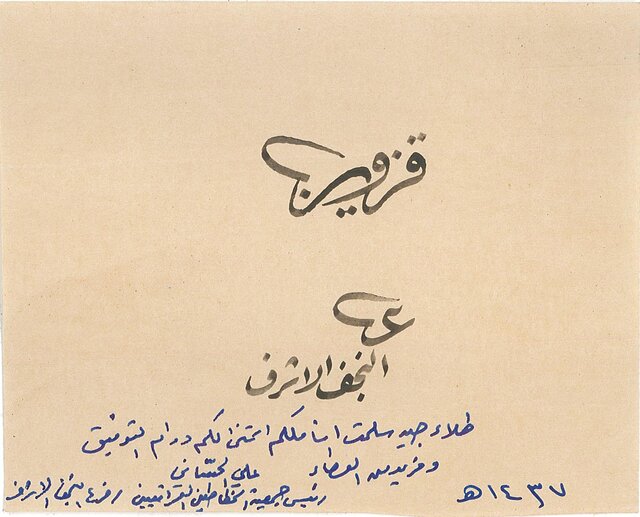 قزوين
النجف الاشرف
طلاء جيد سلمت اناملكم اتمنى لكم دوام التوفيق
ومزيد من العطاء
رئيس جمعية الخطاطين العراقيين / فرع النجف الاشرف
١٤٣٧هـ